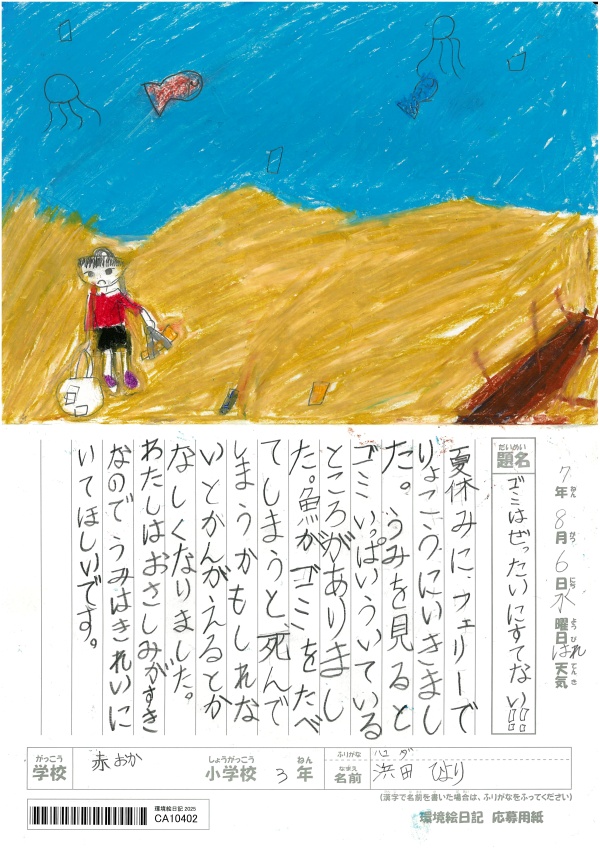 7年8月6日水曜日はれ天気
ねん がつ にち ようび てんき
だいめい
題名
ゴミはぜったいにすてない!!
夏休みに、フェリーで
りょこうにいきまし
た。うみを見ると
ゴミいっぱいういている
ところがありまし
た。魚がゴミをたべ
てしまうと死んで
しまうかもしれな
いとかんがえるとか
なしくなりました。
わたしはおさしみがすき
なのでうみはきれいに
いてほしいです。
がっこう
学校
赤おか
しょうがっこう
小学校
3
ねん
年
ふりがな
ハマダ
なまえ
名前
浜田 ひより
(漢字で名前を書いた場合は、ふりがなをふってください)
環境絵日記 2025
CA10402
環境絵日記 応募用紙